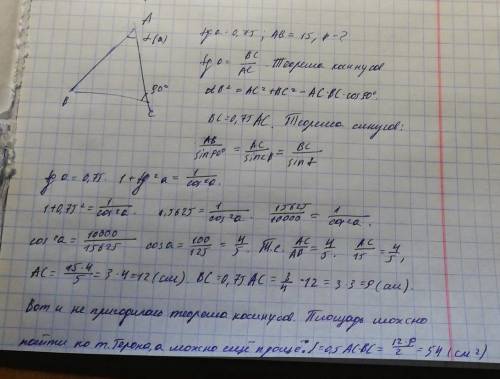 A
α(a)
B
90°
C
tg a = 0,75; AB = 15, S - ?
tg a = BC/AC. Теорема косинусов
AB² = AC² + BC² - AC·BC·cos 90°.
BC = 0,75 AC. Теорема синусов:
AB/sin 90° = AC/sin β = BC/sin α
tg a = 0,75. 1 + tg² a = 1/cos² a.
1 + 0,75² = 1/cos² a. 1,5625 = 1/cos² a. 15625/10000 = 1/cos² a.
cos² a = 10000/15625 cos a = 100/125 = 4/5. Т.е. AC/AB = 4/5. AC/15 = 4/5,
AC = 15·4/5 = 3·4 = 12 (см). BC = 0,75 AC = 3/4 · 12 = 3·3 = 9 (см).
Вот и не пригодилась теорема косинусов. Площадь можно
найти по т. Герона, а можно ещё проще: S = 0,5 AC·BC = 12·9/2 = 54 (см²)